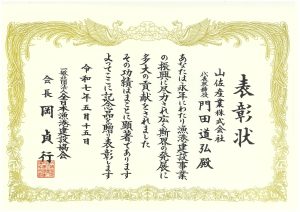 表彰状
山佐産業株式会社
代表取締役 門田道弘殿
あなたは永年にわたり漁港建設事業
の振興に尽力され広く斯界の発展に
多大の貢献をされました
その功績はまことに顕著であります
よってここに記念品を贈り表彰します
令和七年五月十五日
一般社団法人全日本漁港建設協会
会長 岡貞行